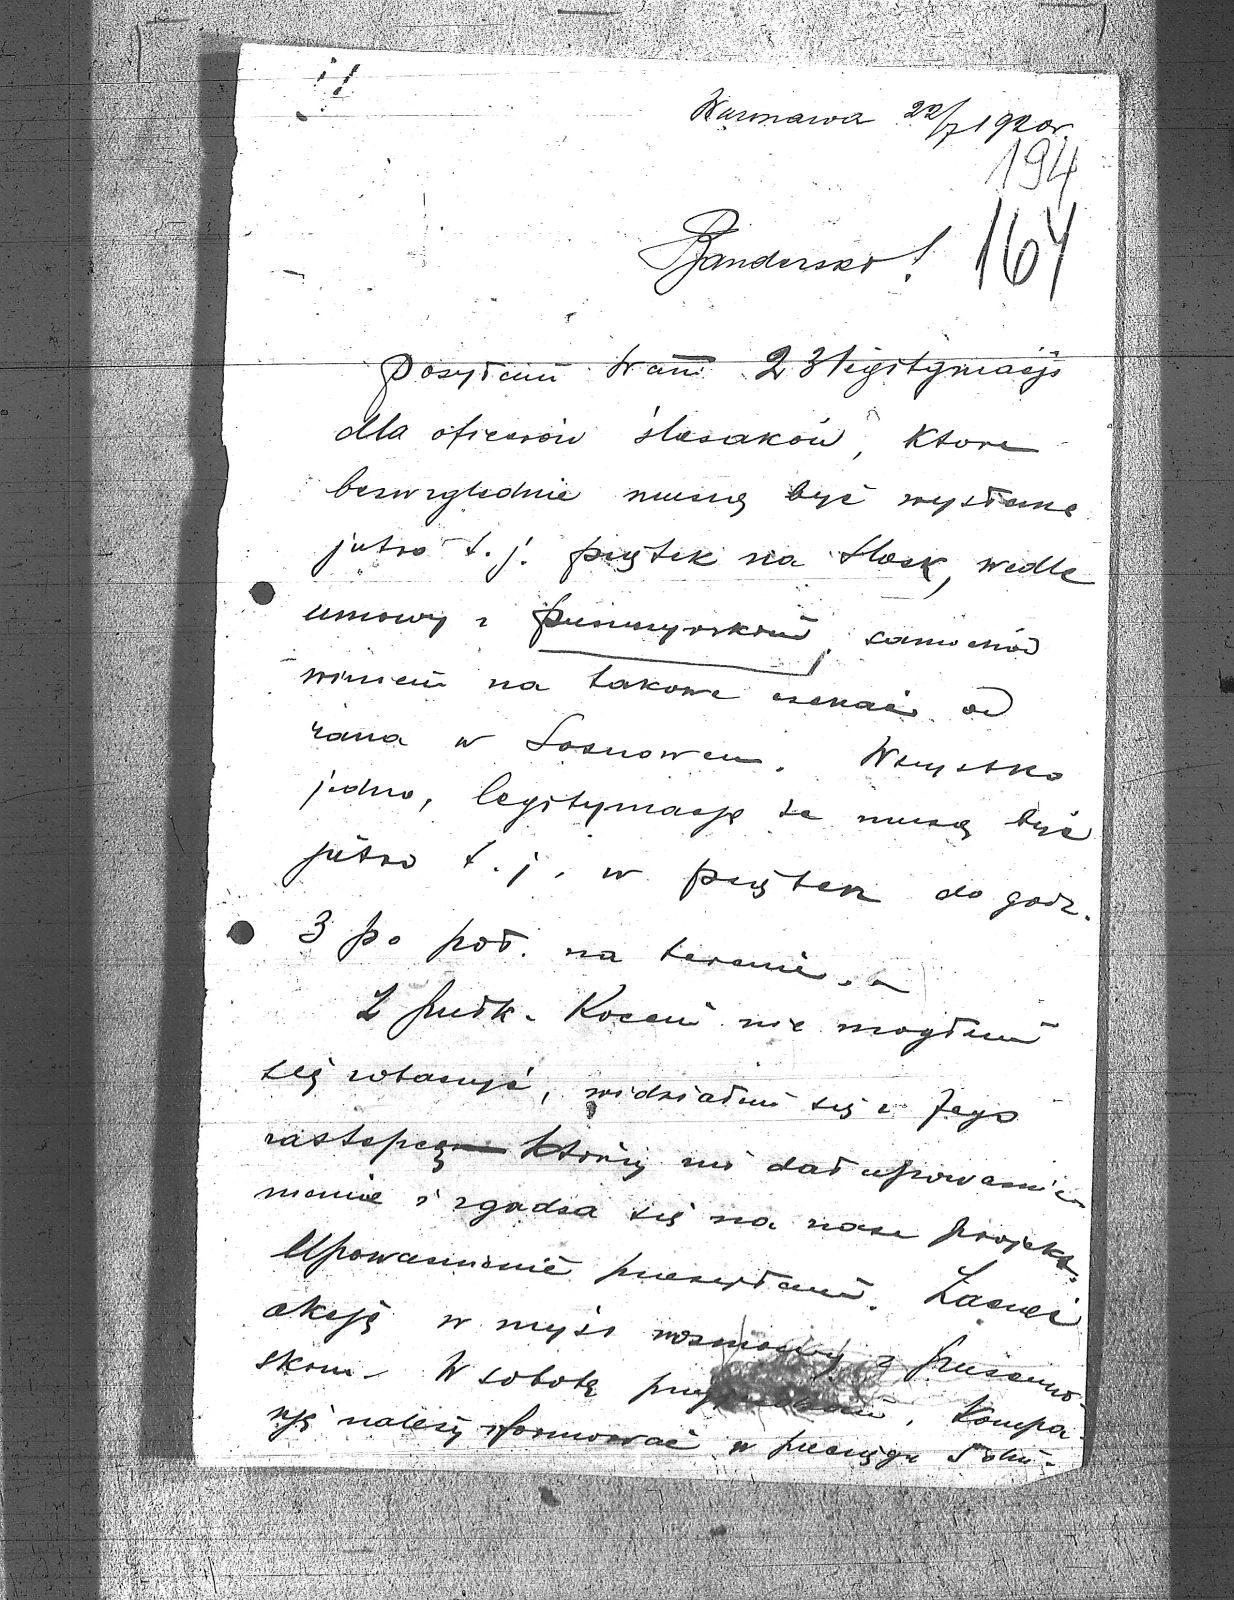 Warszawa 22/7 1920r.
194
164
Bandersko!
posyłam Wam 23 legitymacyje
dla oficerów ślązaków, które
bezwzględnie muszą być wysłane
jutro t.j. piątek na Śląsk, wedle
umowy z samochód
winien na takowe czekać od
rana w Sosnowcu. Wszystko
jedno, legitymacje te muszą być
jutro t.j. w piątek do godz.
3 po poł. na terenie.
Z pułk. Kocem nie mogłem
się zobaczyć, widziałem się z Jego
zastępcą który mi dał upoważnie-
nie i zgadza się na nasz projekt.
Upoważnienie przesyłam. Zacząć
akcję w myśl rozmowy z
skim. W sobotę Kompa-
nję należy sformować w przeciągu 5 dni.